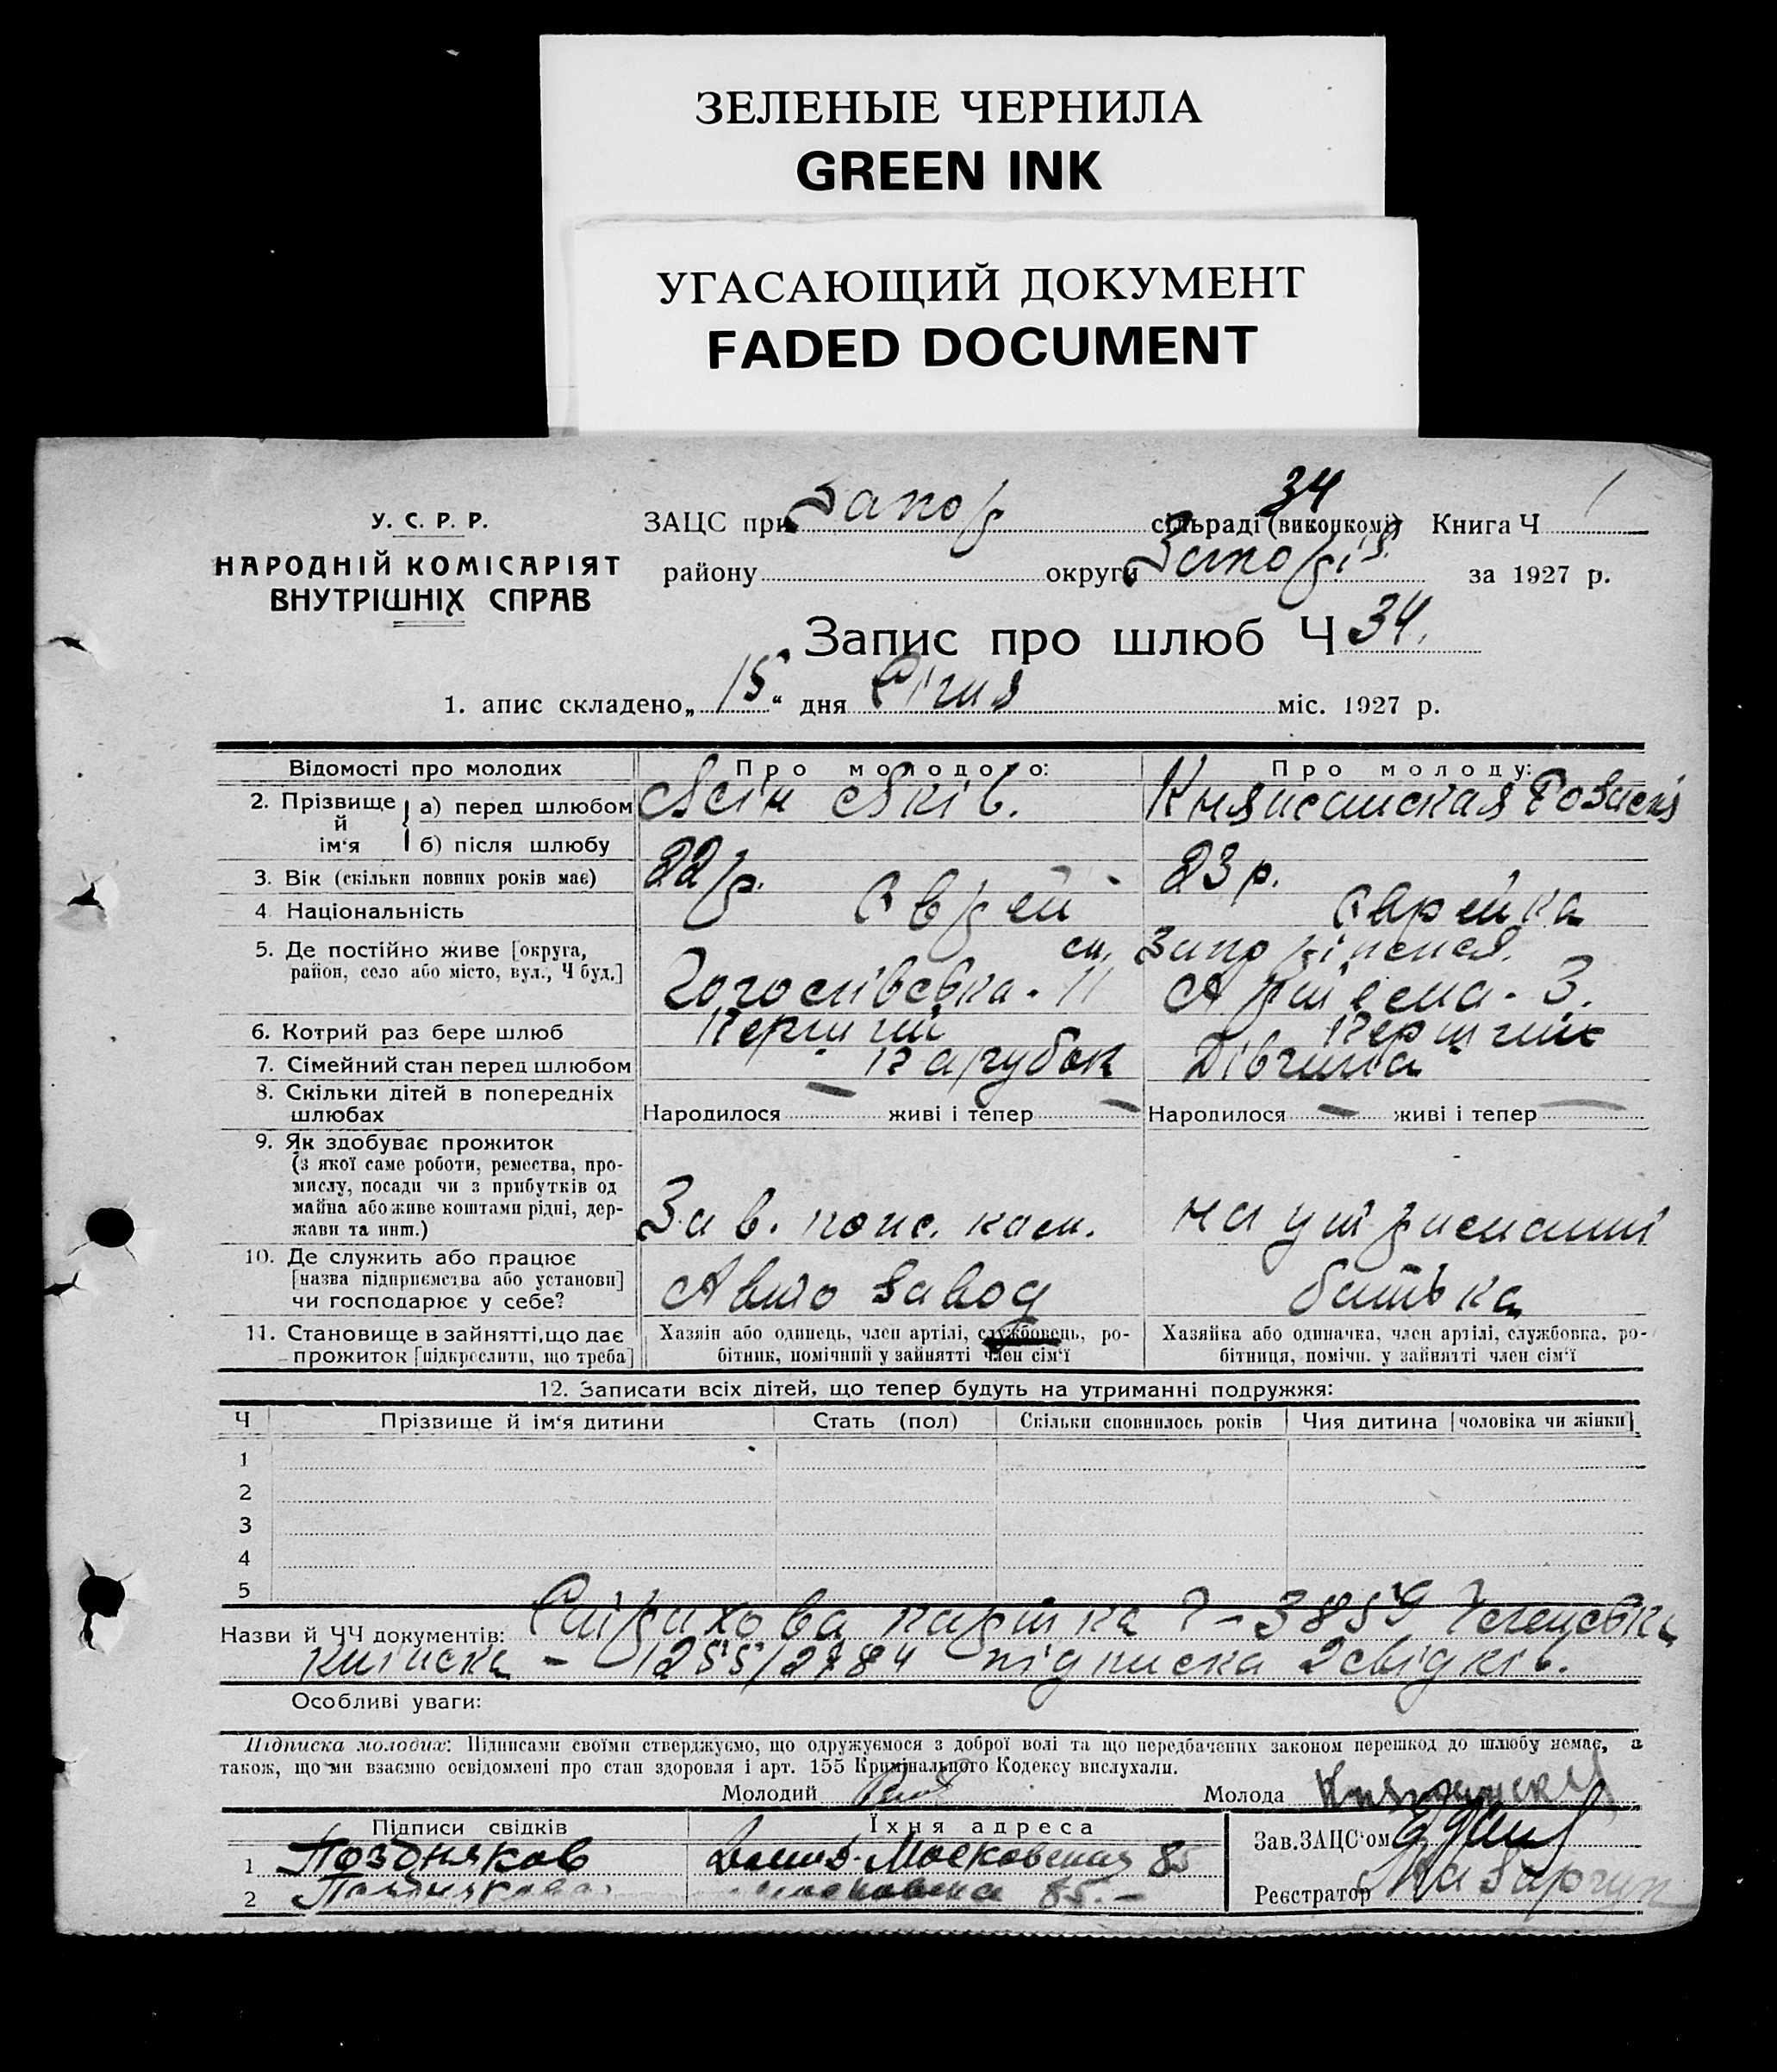 ЗЕЛЕНЫЕ ЧЕРНИЛА
GREEN INK
УГАСАЮЩИЙ ДОКУМЕНТ
FADED DOCUMENT
34
У. С. Р. Р.
ЗАЦС при Запор сільраді (виконкомі) Книга Ч
НАРОДНІЙ КОМІСАРІЯТ
району округи за 1927 р.
ВНУТРІШНІХ СПРАВ
Запис про шлюб Ч 34.
1. апис складено „15“ дня Січня міс. 1927 р.
Відомості про молодих Про молодого: Про молоду:
2. Прізвище й ім‘я
а) перед шлюбом
б) після шлюбу
3. Вік (скільки повних років має) 22 р. 23 р.
4 Національність Єврей Єврейка
5. Де постійно живе [округа,
район, село або місто, вул., Ч буд.]
11 3.
6. Котрий раз бере шлюб Перший
7. Сімейний стан перед шлюбом Парубок Дівчина
8. Скільки дітей в попередніх
шлюбах Народилося — живі і тепер — Народилося — живі і тепер —
9. Як здобуває прожиток
(з якої саме роботи, ремества, про-
мислу, посади чи з прибутків од
майна або живе коштами рідні, дер-
жави та инш.) Зав. на утриманні
10. Де служить або працює
[назва підприємства або установи]
чи господарює у себе? Авто завод батька
11. Становище в зайнятті, що дає
прожиток [підкреслити, що треба]
Хазяїн або одинець, член артілі, службовець, ро-
бітник, помічний у зайнятті член сім‘ї
Хазяйка або одиначка, член артілі, службовка, ро-
бітниця, помічн. у зайнятті член сім‘ї
12. Записати всіх дітей, що тепер будуть на утриманні подружжя:
Ч Прізвище й ім‘я дитини Стать (пол) Скільки сповнилось років Чия дитина [чоловіка чи жінки]
1
2
3
4
5
Назви й ЧЧ документів: Страхова картка Ч – 3859 Членська
книжка – 1255/2784 підписка 2 свідків.
Особливі уваги:
Підписка молодих: Підписами своїми стверджуємо, що одружуємося з доброї волі та що передбачених законом перешкод до шлюбу немає, а
також, що ми взаємно освідомлені про стан здоровля і арт. 155 Кримінального Кодексу вислухали.
Молодий Молода
Підписи свідків Їхня адреса
Зав. ЗАЦС‘ом
1 Поздняков Московская 85
2 85. –
Реєстратор